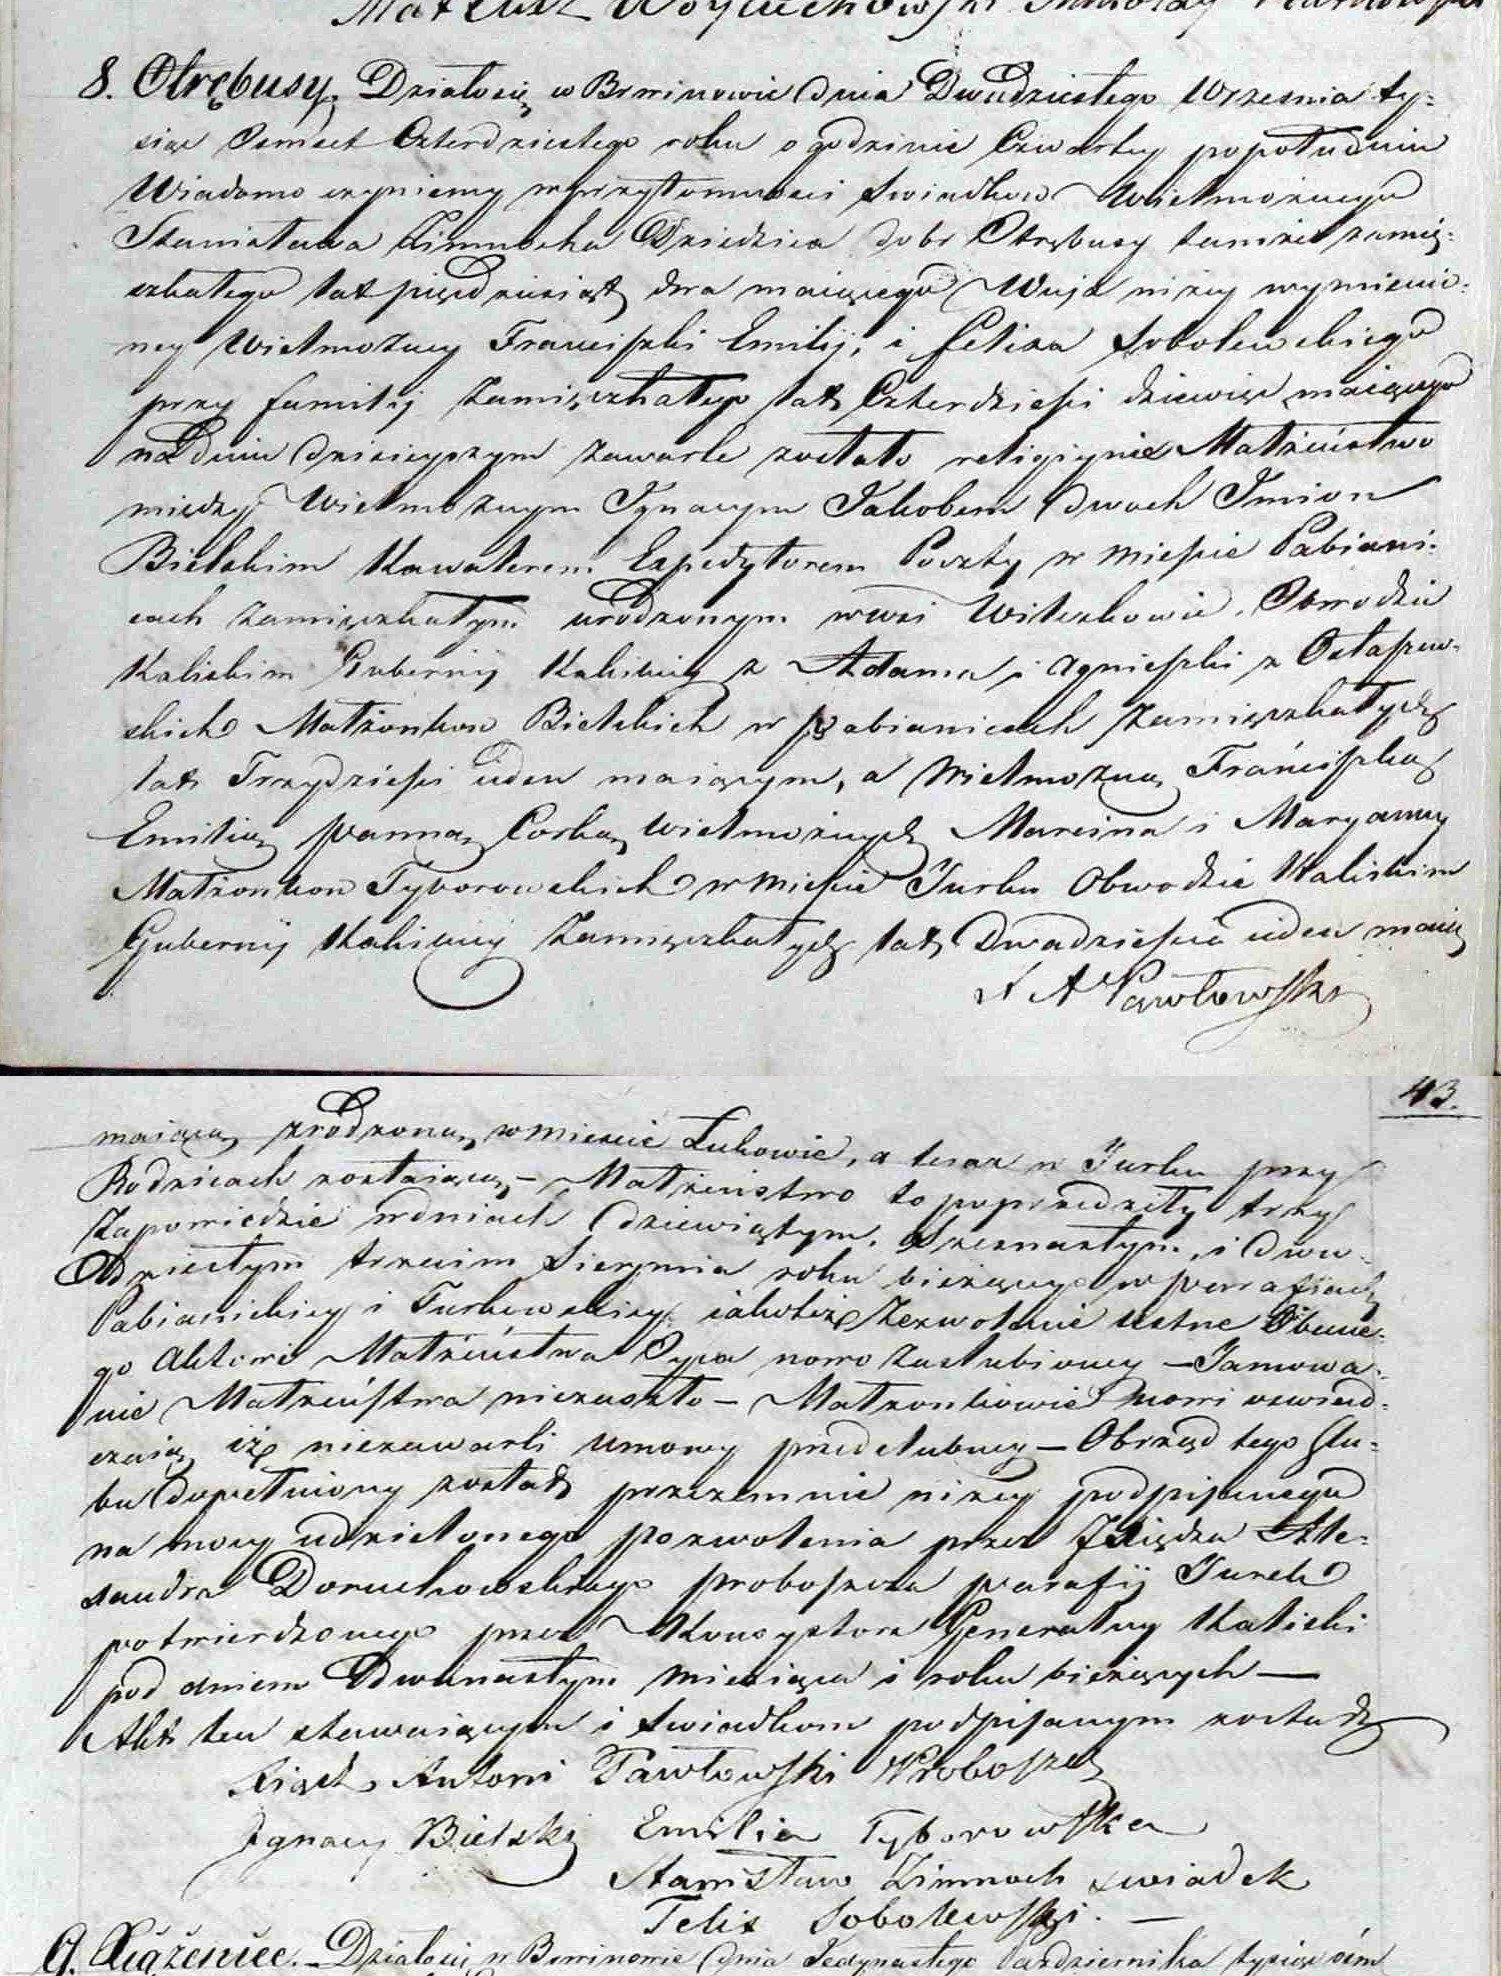 Mateusz Woyciechowski
8. Otrębusy. Działo się w Brwinowie dnia Dwudziestego Września ty=
siąc Osmset Czterdziestego roku o godzinie Czwartey popołudniu
Wiadomo czyniemy w przytomności Swiadkow Wielmożnego
Stanisława Zimnocha Dziedzica dobr Otrębusy tamże zamię=
szkałego lat pięćdziesiąt dwa maiącego Wuja niżey wymienio=
ney Wielmożney Franciszki Emilij, i Felixa Sobolewskiego
przy familij zamięszkałego lat Czterdzieści dziewięć maiącego
na Dniu dzisieyszym zawarte zostało religiynie Małżeństwo
między Wielmożnym Ignacym Jakobem dwoch Imion
Bielskim Kawalerem Expedytorem Poczty w Mieście Pabiani=
cach zamięszkałym urodzonym we wsi Witeskowie Obwodzie
Kaliskim Gubernij Kaliskiey z Adama i Agnieszki z Ostaszew=
skich Małżonkow Bielskich w Pabianicach zamięszkałych
lat Trzydzieści ieden maiącym, a Wielmożną Franciszką
Emilią panną Corką Wielmożnych Marcina i Maryanny
Małżonkow Tyborowskich w Mieście Turku Obwodzie Kaliskim
Gubernij Kaliskiey zamięszkałych lat Dwadzieścia ieden maią
X A Pawłowski
43.
maiącą zrodzoną w Mieście Łukowie, a teraz w Turku przy
Rodzicach zostaiącą – Małżeństwo to poprzedziły trzy
zapowiedzie w dniach dziewiątym, Szesnastym, i dwu=
dziestym trzecim Sierpnia roku bieżącego w parafiach
Pabianickiey i Turkowskiey iakoteż zezwolenie ustne Obecne=
go Aktowi Małżeństwa Oyca nowo zaslubioney – Tamowa=
nie Małżeństwa niezaszło – Małżonkowie nowi oswiad=
czaią iż niezawarli umowy przedslubney – Obrzęd tego Slu=
bu dopełniony został przezemnie niżey podpisanego
na mocy udzielonego pozwolenia przez Xiędza Ale=
xandra Doruchowskiego proboszcza parafij Turek
potwierdzonego przez Konsystorz Generalny Kaliski
pod dniem Dwunastym Miesiąca i roku bieżących –
Akt ten stawaiącym i Swiadkom podpisanym został
Xiądz Antoni Pawłowski Proboszcz
Ignacy Bielski Emilia Tyborowska
Stanisław Zimnoch swiadek
Felix Sobolewski. –
9. Xiążenice. – Działo się w Brwinowie dnia Jedynastego Października tysiąc osm